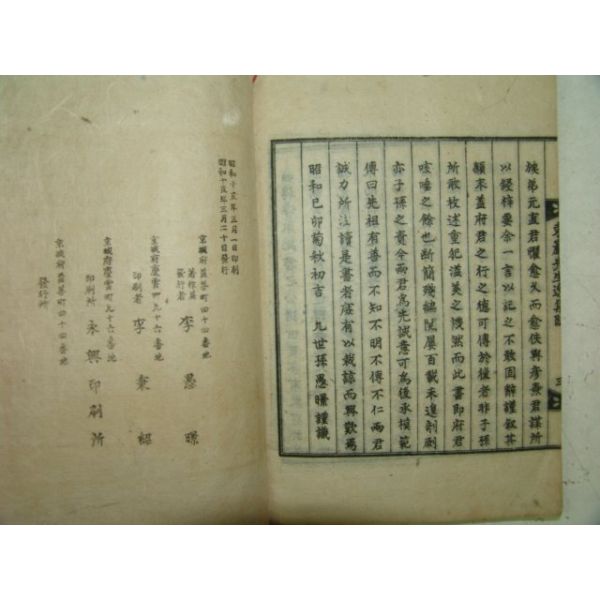 族弟元直君懼愈久而愈佚與彦熹君謀所
以鋟梓要余一言以記之不敢固辭謹叙其
顚末蓋府君之行之德可傳於後者非子孫
所敢枚述重犯溢美之譏然而此書卽府君
咳唾之餘也斷簡殘編閱屢百載未遑剞劂
亦子孫之責今兩君爲先誠意可爲後承模範
傳曰先祖有善而不知不明不傳不仁兩君
誠力所注讀是書者庶有以栽諒而興歎焉
昭和己卯菊秋初吉 九世孫愚暻謹識
昭和十五年三月一日印刷
昭和十五年三月二十日發行
京城府益善町四十四番地
發行者 李愚暻
京城府慶雲町九十六番地
印刷者 李秉
京城府慶雲町九十六番地
印刷所 永興印刷所
京城府益善町四十四番地
發行所